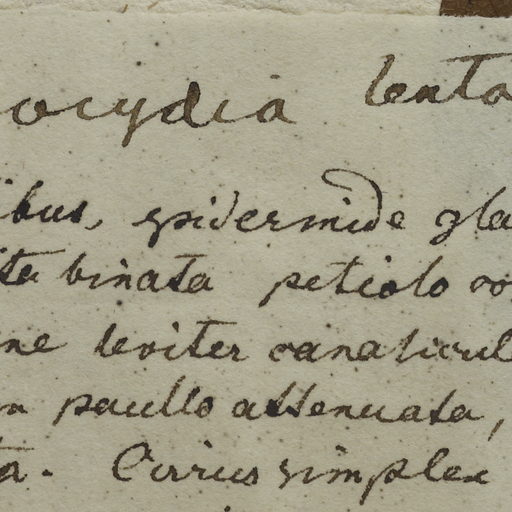 ocydia lenta
ibus, epidermide gla
ita binata petiolo co
ne leviter canalicul
m paullo attenuata,
ta. Cirrus simplex